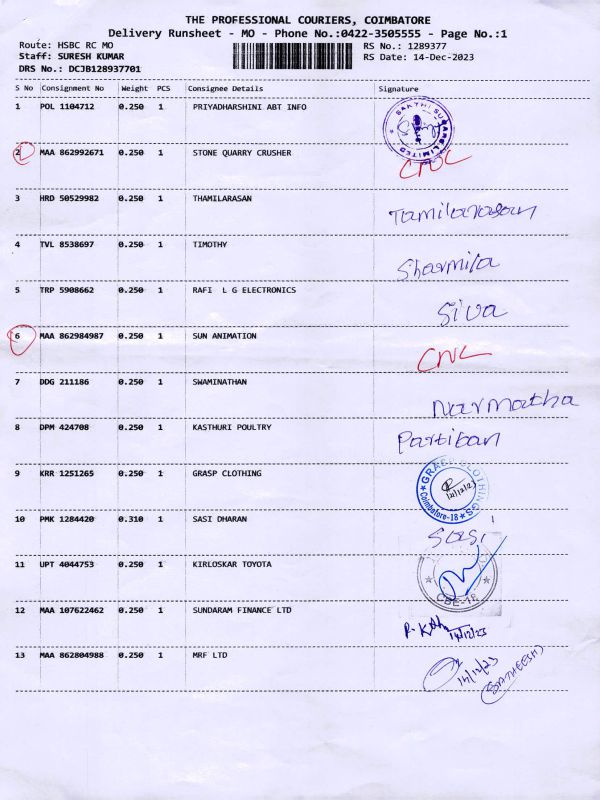 THE PROFESSIONAL COURIERS, COIMBATORE
Delivery Runsheet - MO - Phone No.:0422-3505555 - Page No.:1
Route: HSBC RC MO RS No.: 1289377
Staff: SURESH KUMAR RS Date: 14-Dec-2023
DRS No.: DCJB128937701
S No Consignment No Weight PCS Consignee Details Signature
1 POL 1104712 0.250 1 PRIYADHARSHINI ABT INFO
SAKTHI SUGARS LIMITED
2 MAA 862992671 0.250 1 STONE QUARRY CRUSHER CNC
3 HRD 50529982 0.250 1 THAMILARASAN Tamilarasan
4 TVL 8538697 0.250 1 TIMOTHY Sharmila
5 TRP 5908662 0.250 1 RAFI L G ELECTRONICS Siva
6 MAA 862984987 0.250 1 SUN ANIMATION CNC
7 DDG 211186 0.250 1 SWAMINATHAN Narmatha
8 DPM 424708 0.250 1 KASTHURI POULTRY Partiban
9 KRR 1251265 0.250 1 GRASP CLOTHING
GRASP CLOTHINGS
14/12/23
Coimbatore-18
10 PMK 1284420 0.310 1 SASI DHARAN Sasi
11 UPT 4044753 0.250 1 KIRLOSKAR TOYOTA
CBE-18
12 MAA 107622462 0.250 1 SUNDARAM FINANCE LTD
14/12/23
13 MAA 862804988 0.250 1 MRF LTD
14/12/23
(SATHEESH)